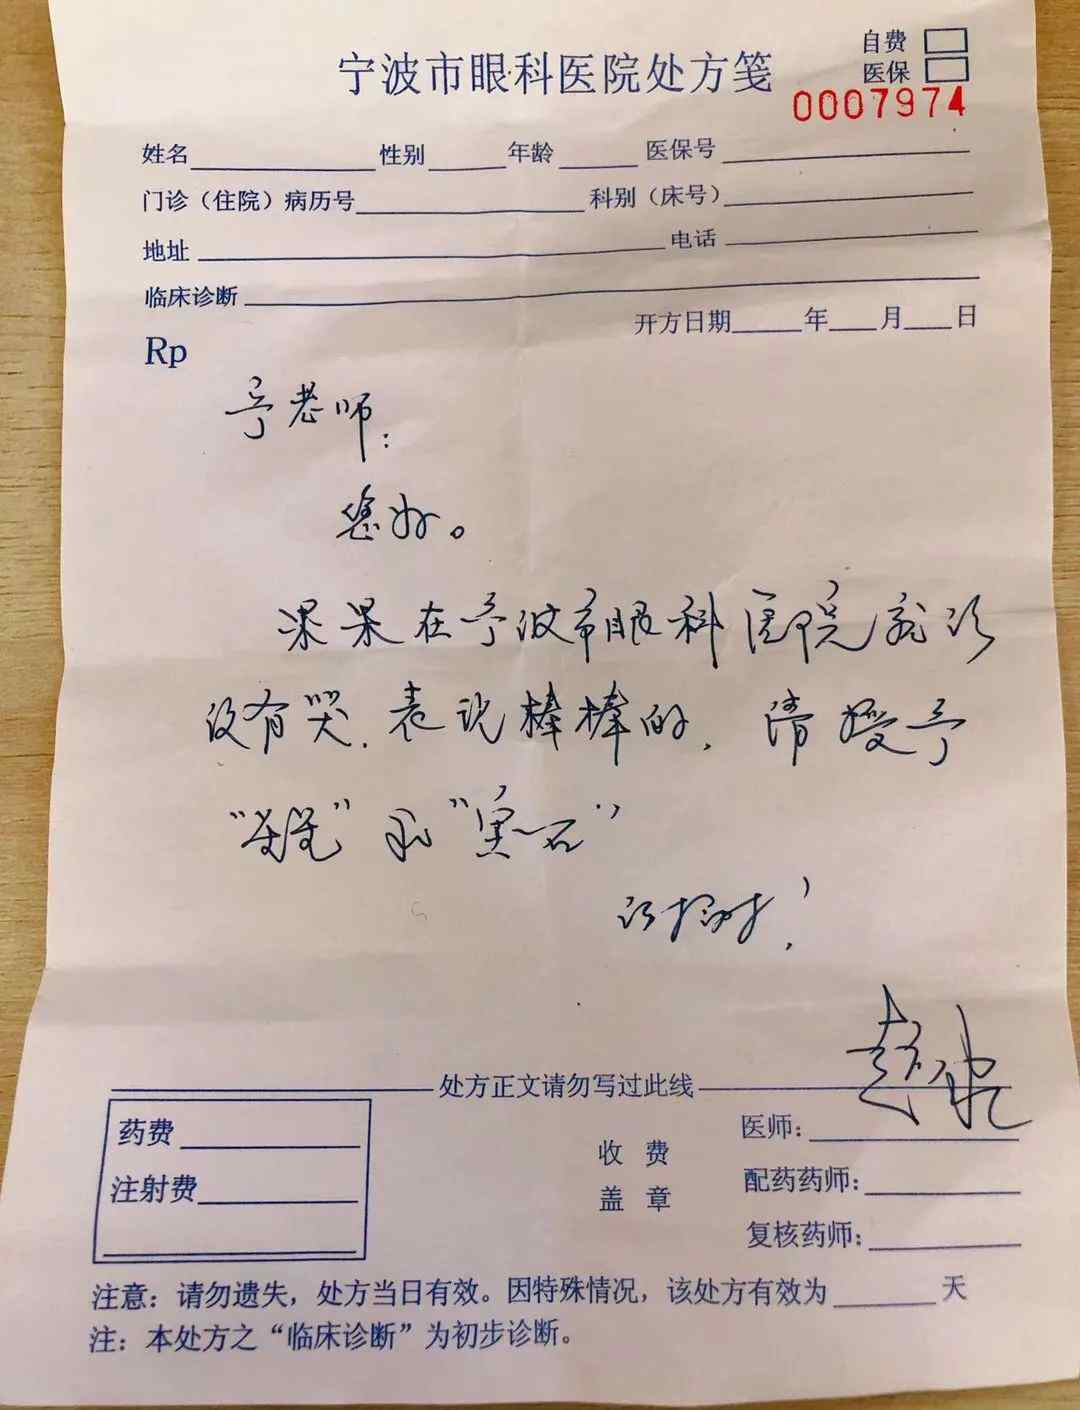 宁波市眼科医院处方笺
自费
医保
0007974
姓名 性别 年龄 医保号
门诊（住院）病历号 科别（床号）
地址 电话
临床诊断
开方日期 年 月 日
Rp
老师：
您好。
果果在宁波市眼科医院就诊
没有哭，表现棒棒的，请授予
“ ” 和 “宝石”
谢谢！
处方正文请勿写过此线
药费
注射费
收费
盖章
医师：
配药药师：
复核药师：
注意：请勿遗失，处方当日有效。因特殊情况，该处方有效为 天
注：本处方之“临床诊断”为初步诊断。